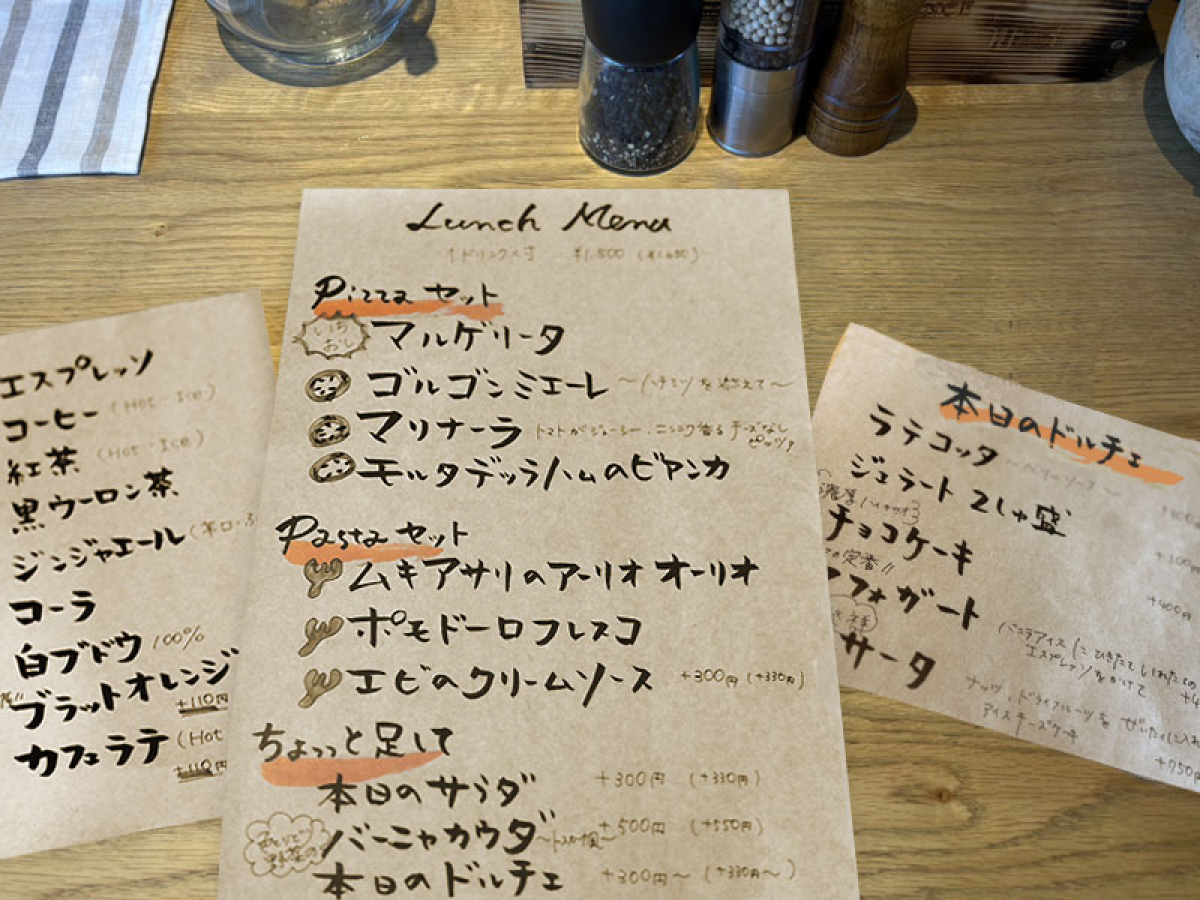 エスプレッソ
コーヒー (Hot・Ice)
紅茶 (Hot・Ice)
黒ウーロン茶
ジンジャエール
コーラ
白ブドウ 100%
ブラットオレンジ
+110円
カフェラテ (Hot
+110円
Lunch Menu
¥1,500
Pizza セット
いち
おし
マルゲリータ
ゴルゴンミエーレ 〜ハチミツを添えて〜
マリナーラ トマトがジューシー、ニンニク香る チーズなし
ピッツァ
モルタデッラハムのビアンカ
Pasta セット
ムキアサリのアーリオ オーリオ
ポモドーロフレスコ
エビのクリームソース +300円 (+330円)
ちょっっと足して
本日のサラダ +300円 (+330円)
バーニャカウダ +500円 (+550円)
本日のドルチェ +300円〜 (+330円〜)
本日のドルチェ
ラテコッタ
ジェラート 2しゅ盛
+300円
チョコケーキ
+400円
の定番〃
フォガート
バニラアイスに ひきたて いれたての
エスプレッソをかけて
サータ
ナッツ、ドライフルーツを ぜいたくに入れ
アイスチーズケーキ
+750円